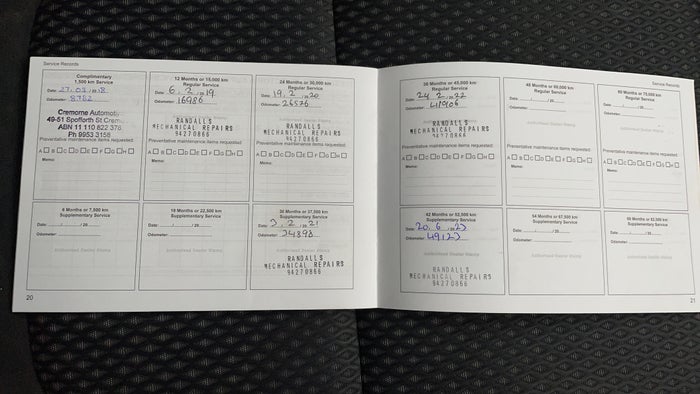 Service Records
Complimentary
1,500 km Service
Date: 27, 03, 2018
Odometer: 8782
Cremorne Automotiv
49-51 Spofforth St Cremo
ABN 11 110 822 376
Ph 9953 3158
Preventative maintenance items requested:
A B C D E F G H
Memo:
12 Months or 15,000 km
Regular Service
Date: 6, 2, 2019
Odometer: 16986
RANDALLS
MECHANICAL REPAIRS
94270866
Preventative maintenance items requested:
A B C D E F G H
Memo:
24 Months or 30,000 km
Regular Service
Date: 19, 2, 2020
Odometer: 26576
RANDALLS
MECHANICAL REPAIRS
94270866
Preventative maintenance items requested:
A B C D E F G H
Memo:
6 Months or 7,500 km
Supplementary Service
Date: / / 20
Odometer:
Authorised Dealer Stamp
18 Months or 22,500 km
Supplementary Service
Date: / / 20
Odometer:
Authorised Dealer Stamp
30 Months or 37,500 km
Supplementary Service
Date: 2, 2, 2021
Odometer: 34898
Authorised Dealer Stamp
RANDALLS
MECHANICAL REPAIRS
94270866
20
Service Records
36 Months or 45,000 km
Regular Service
Date: 24, 2, 2022
Odometer: 41906
RANDALLS
MECHANICAL REPAIRS
94270866
Preventative maintenance items requested:
A B C D E F G H
Memo:
48 Months or 60,000 km
Regular Service
Date: / / 20
Odometer:
Authorised Dealer Stamp
Preventative maintenance items requested:
A B C D E F G H
Memo:
60 Months or 75,000 km
Regular Service
Date: / / 20
Odometer:
Authorised Dealer Stamp
Preventative maintenance items requested:
A B C D E F G H
Memo:
42 Months or 52,500 km
Supplementary Service
Date: 20, 6, 2023
Odometer: 49123
Authorised Dealer Stamp
RANDALLS
MECHANICAL REPAIRS
94270866
54 Months or 67,500 km
Supplementary Service
Date: / / 20
Odometer:
Authorised Dealer Stamp
66 Months or 82,500 km
Supplementary Service
Date: / / 20
Odometer:
Authorised Dealer Stamp
21